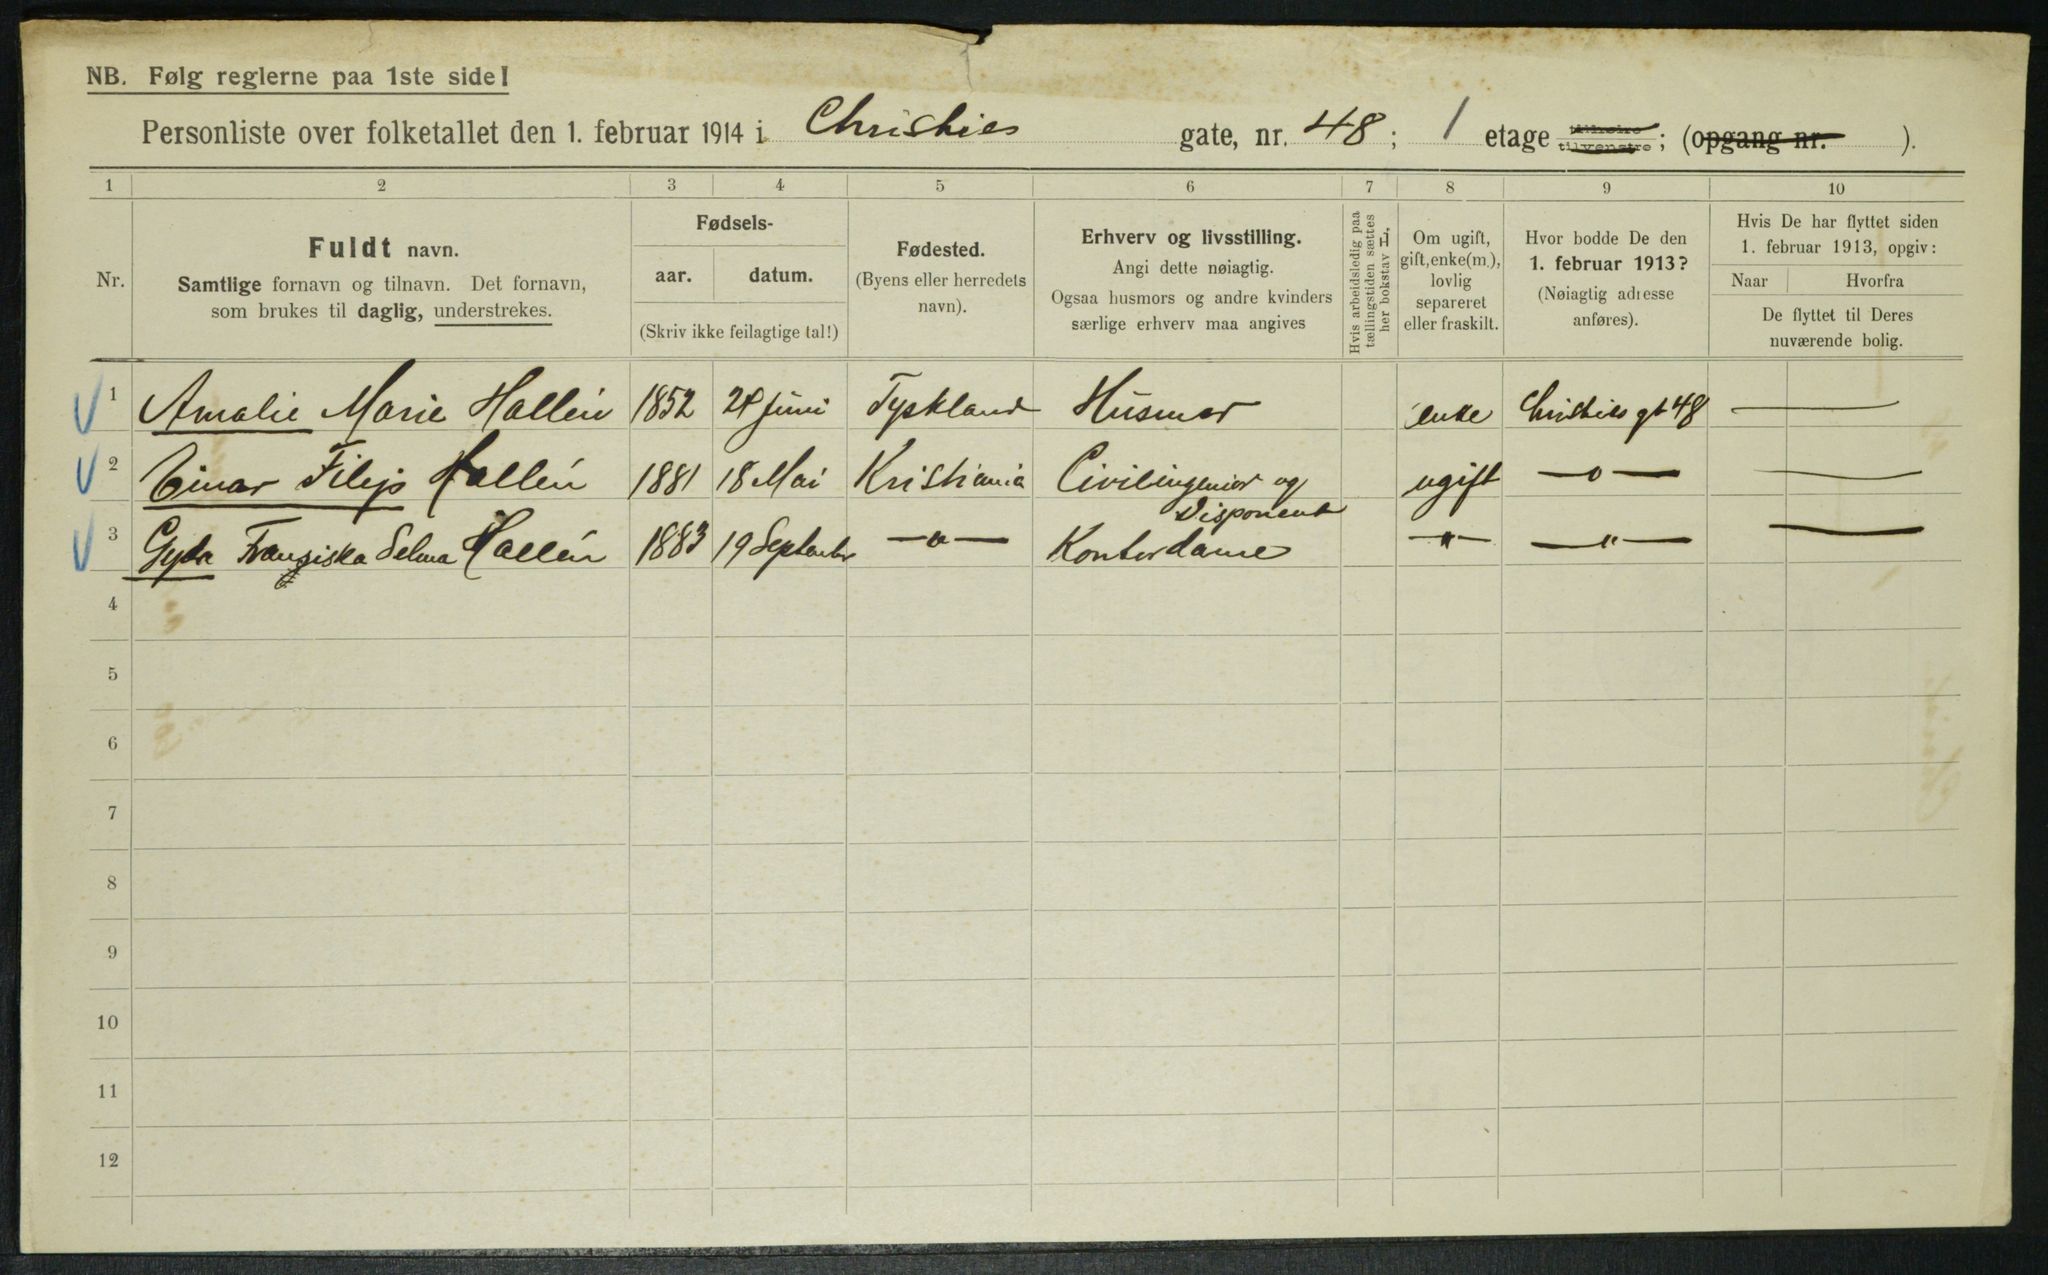 NB. Følg reglerne paa 1ste side!
Personliste over folketallet den 1. februar 1914 i Christies gate, nr. 48; 1 etage tilhøire tilvenstre; (opgang nr. ).
1 2 3 4 5 6 7 8 9 10
Nr.
Fuldt navn.
Samtlige fornavn og tilnavn. Det fornavn,
som brukes til daglig, understrekes.
Fødsels-
aar. datum.
(Skriv ikke feilagtige tal!)
Fødested.
(Byens eller herredets
navn).
Erhverv og livsstilling.
Angi dette nøiagtig.
Ogsaa husmors og andre kvinders
særlige erhverv maa angives
Hvis arbeidsledig paa
tællingstiden sættes
her bokstav L,
Om ugift,
gift, enke(m.),
lovlig
separeret
eller fraskilt.
Hvor bodde De den
1. februar 1913?
(Nøiagtig adresse
anføres).
Hvis De har flyttet siden
1. februar 1913, opgiv:
Naar Hvorfra
De flyttet til Deres
nuværende bolig.
1 Amalie Marie Hallén 1852 Juni Tyskland Husmor enke Christies gt 48 —
2 Einar Filip Hallén 1881 18 Mai Kristiania Civilingeniør og Disponent ugift —"— —
3 Gyda Franziska Selma Hallén 1883 19 September —"— Kontordame —"— —"— —
4
5
6
7
8
9
10
11
12